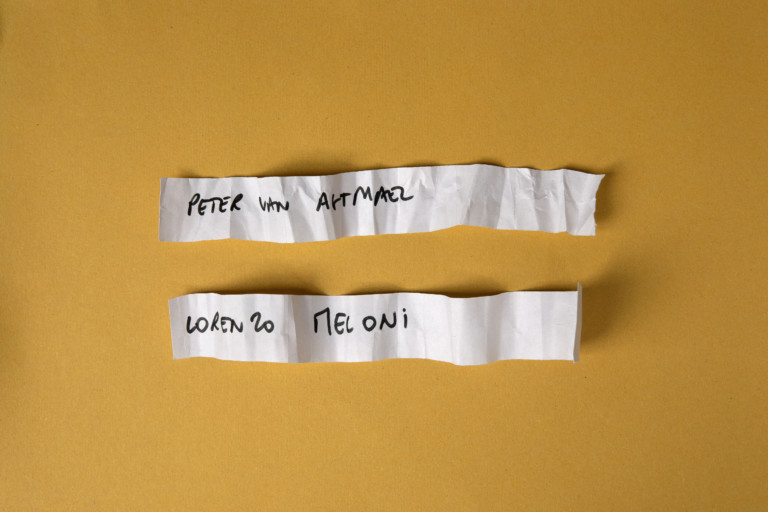 PETER VAN AHTMAEL
LORENZO MELONI